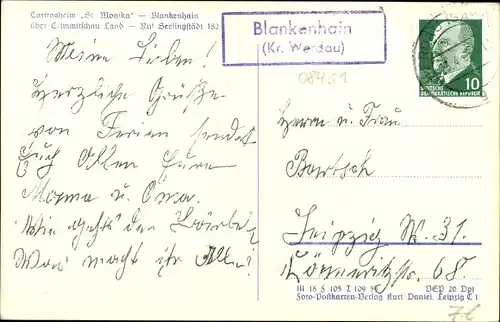 Caritasheim „St. Monika" — Blankenhain
über Crimmitschau Land — Ruf Seelingstädt 182
Blankenhain
(Kr. Werdau)
08451
10
DEUTSCHE
DEMOKRATISCHE REPUBLIK
Meine Lieben!
Herzliche Grüße
von Ferien sendet
Euch Allen Eure
Mama u. Oma.
Wie gehts der Bärbel
Was macht ihr Alle?
Herrn u. Frau
Bartsch
Leipzig W. 31.
68.
III 18 5 105 I 109 59
DEP 20 Dpf
Foto-Postkarten-Verlag Kurt Daniel, Leipzig C 1
7.6